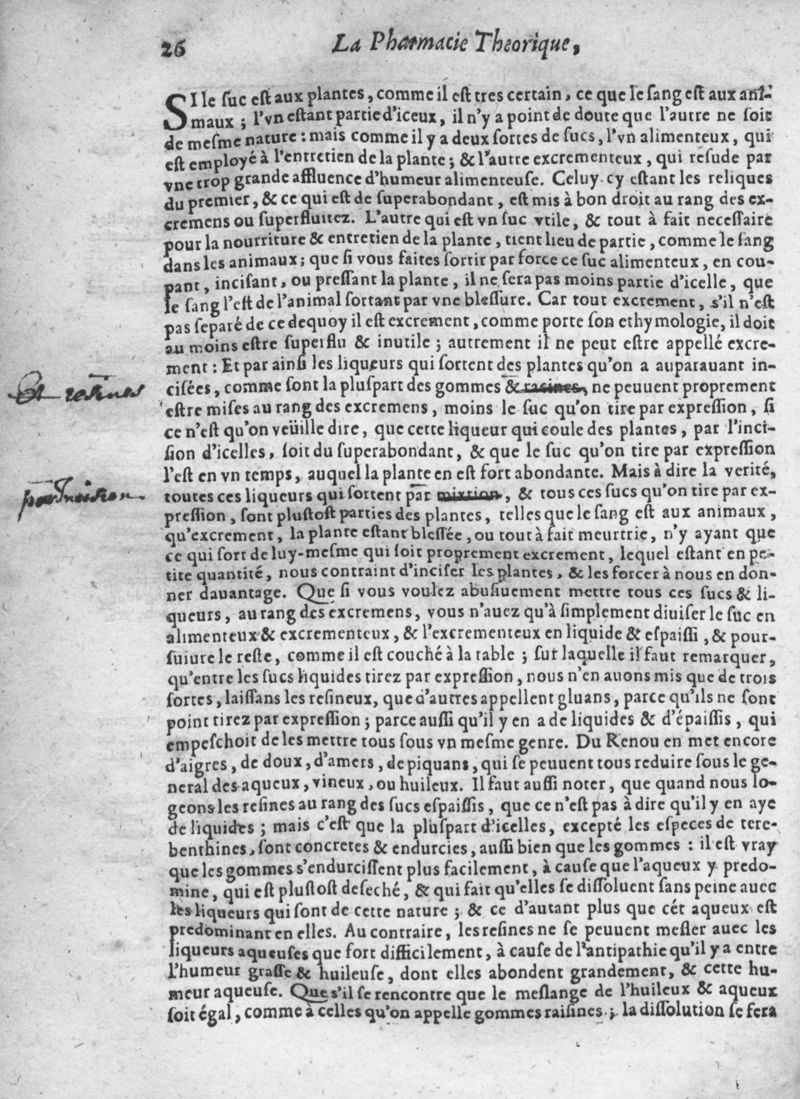 26 La Pharmacie Theorique,
SI le ſuc eſt aux plantes, comme il eſt tres certain, ce que le ſang eſt aux ani-
maux ; l'vn eſtant partie d'iceux, il n'y a point de doute que l'autre ne ſoit
de meſme nature : mais comme il y a deux ſortes de ſucs, l'vn alimenteux, qui
eſt employé à l'entretien de la plante ; & l'autre excrementeux, qui reſude par
vne trop grande affluence d'humeur alimenteuſe. Celuy cy eſtant les reliques
du premier, & ce qui eſt de ſuperabondant, eſt mis à bon droit au rang des ex-
cremens ou ſuperfluitez. L'autre qui eſt vn ſuc vtile, & tout à fait neceſſaire
pour la nourriture & entretien de la plante, tient lieu de partie, comme le ſang
dans les animaux; que ſi vous faites ſortir par force ce ſuc alimenteux, en cou-
pant, inciſant, ou preſſant la plante, il ne ſera pas moins partie d'icelle, que
le ſang l'eſt de l'animal ſortant par vne bleſſure. Car tout excrement, s'il n'eſt
pas ſeparé de ce dequoy il eſt excrement, comme porte ſon ethymologie, il doit
au moins eſtre ſuperflu & inutile ; autrement il ne peut eſtre appellé excre-
ment : Et par ainſi les liqueurs qui ſortent des plantes qu'on a auparauant in-
Et resines
ciſées, comme ſont la pluſpart des gommes & racines, ne peuuent proprement
eſtre miſes au rang des excremens, moins le ſuc qu'on tire par expreſſion, ſi
ce n'eſt qu'on veüille dire, que cette liqueur qui coule des plantes, par l'inci-
ſion d'icelles, ſoit du ſuperabondant, & que le ſuc qu'on tire par expreſſion
l'eſt en vn temps, auquel la plante en eſt fort abondante. Mais à dire la verité,
par Incision
toutes ces liqueurs qui ſortent par mixtion, & tous ces ſucs qu'on tire par ex-
preſſion, ſont pluſtoſt parties des plantes, telles que le ſang eſt aux animaux,
qu'excrement, la plante eſtant bleſſée, ou tout à fait meurtrie, n'y ayant que
ce qui ſort de luy-meſme qui ſoit proprement excrement, lequel eſtant en pe-
tite quantité, nous contraint d'inciſer les plantes, & les forcer à nous en don-
ner dauantage. Que ſi vous voulez abuſiuement mettre tous ces ſucs & li-
queurs, au rang des excremens, vous n'auez qu'à ſimplement diuiſer le ſuc en
alimenteux & excrementeux, & l'excrementeux en liquide & eſpaiſſi, & pour-
ſuiure le reſte, comme il eſt couché à la table ; ſur laquelle il faut remarquer,
qu'entre les ſucs liquides tirez par expreſſion, nous n'en auons mis que de trois
ſortes, laiſſans les reſineux, que d'autres appellent gluans, parce qu'ils ne ſont
point tirez par expreſſion ; parce auſſi qu'il y en a de liquides & d'épaiſſis, qui
empeſchoit de les mettre tous ſous vn meſme genre. Du Renou en met encore
d'aigres, de doux, d'amers, de piquans, qui ſe peuuent tous reduire ſous le ge-
neral des aqueux, vineux, ou huileux. Il faut auſſi noter, que quand nous lo-
geons les reſines au rang des ſucs eſpaiſſis, que ce n'eſt pas à dire qu'il y en aye
de liquides ; mais c'eſt que la pluſpart d'icelles, excepté les eſpeces de tere-
benthines, ſont concretes & endurcies, auſſi bien que les gommes : il eſt vray
que les gommes s'endurciſſent plus facilement, à cauſe que l'aqueux y predo-
mine, qui eſt pluſtoſt deſeché, & qui fait qu'elles ſe diſſoluent ſans peine auec
les liqueurs qui ſont de cette nature ; & ce d'autant plus que cét aqueux eſt
predominant en elles. Au contraire, les reſines ne ſe peuuent meſler auec les
liqueurs aqueuſes que fort difficilement, à cauſe de l'antipathie qu'il y a entre
l'humeur graſſe & huileuſe, dont elles abondent grandement, & cette hu-
meur aqueuſe. Que s'il ſe rencontre que le meſlange de l'huileux & aqueux
ſoit égal, comme à celles qu'on appelle gommes raiſines ; la diſſolution ſe fera